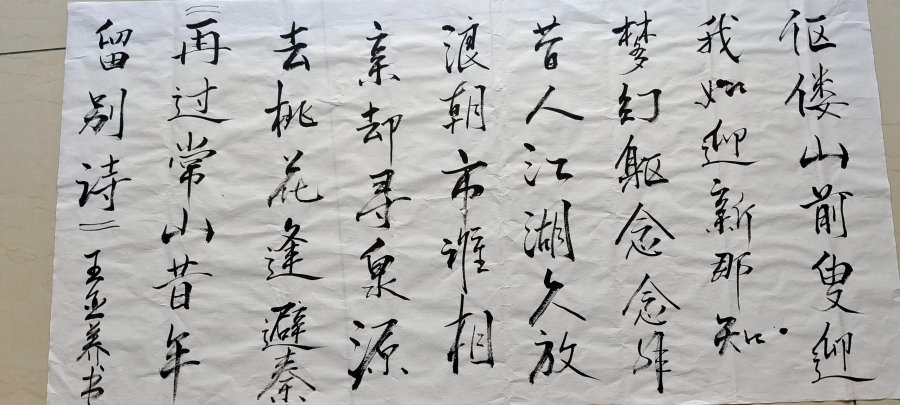 伛偻山前叟迎
我如迎新那知
梦幻躯念念非
昔人江湖久放
浪朝市谁相
亲却寻泉源
去桃花逢避秦
《再过常山昔年
留别诗》王养书